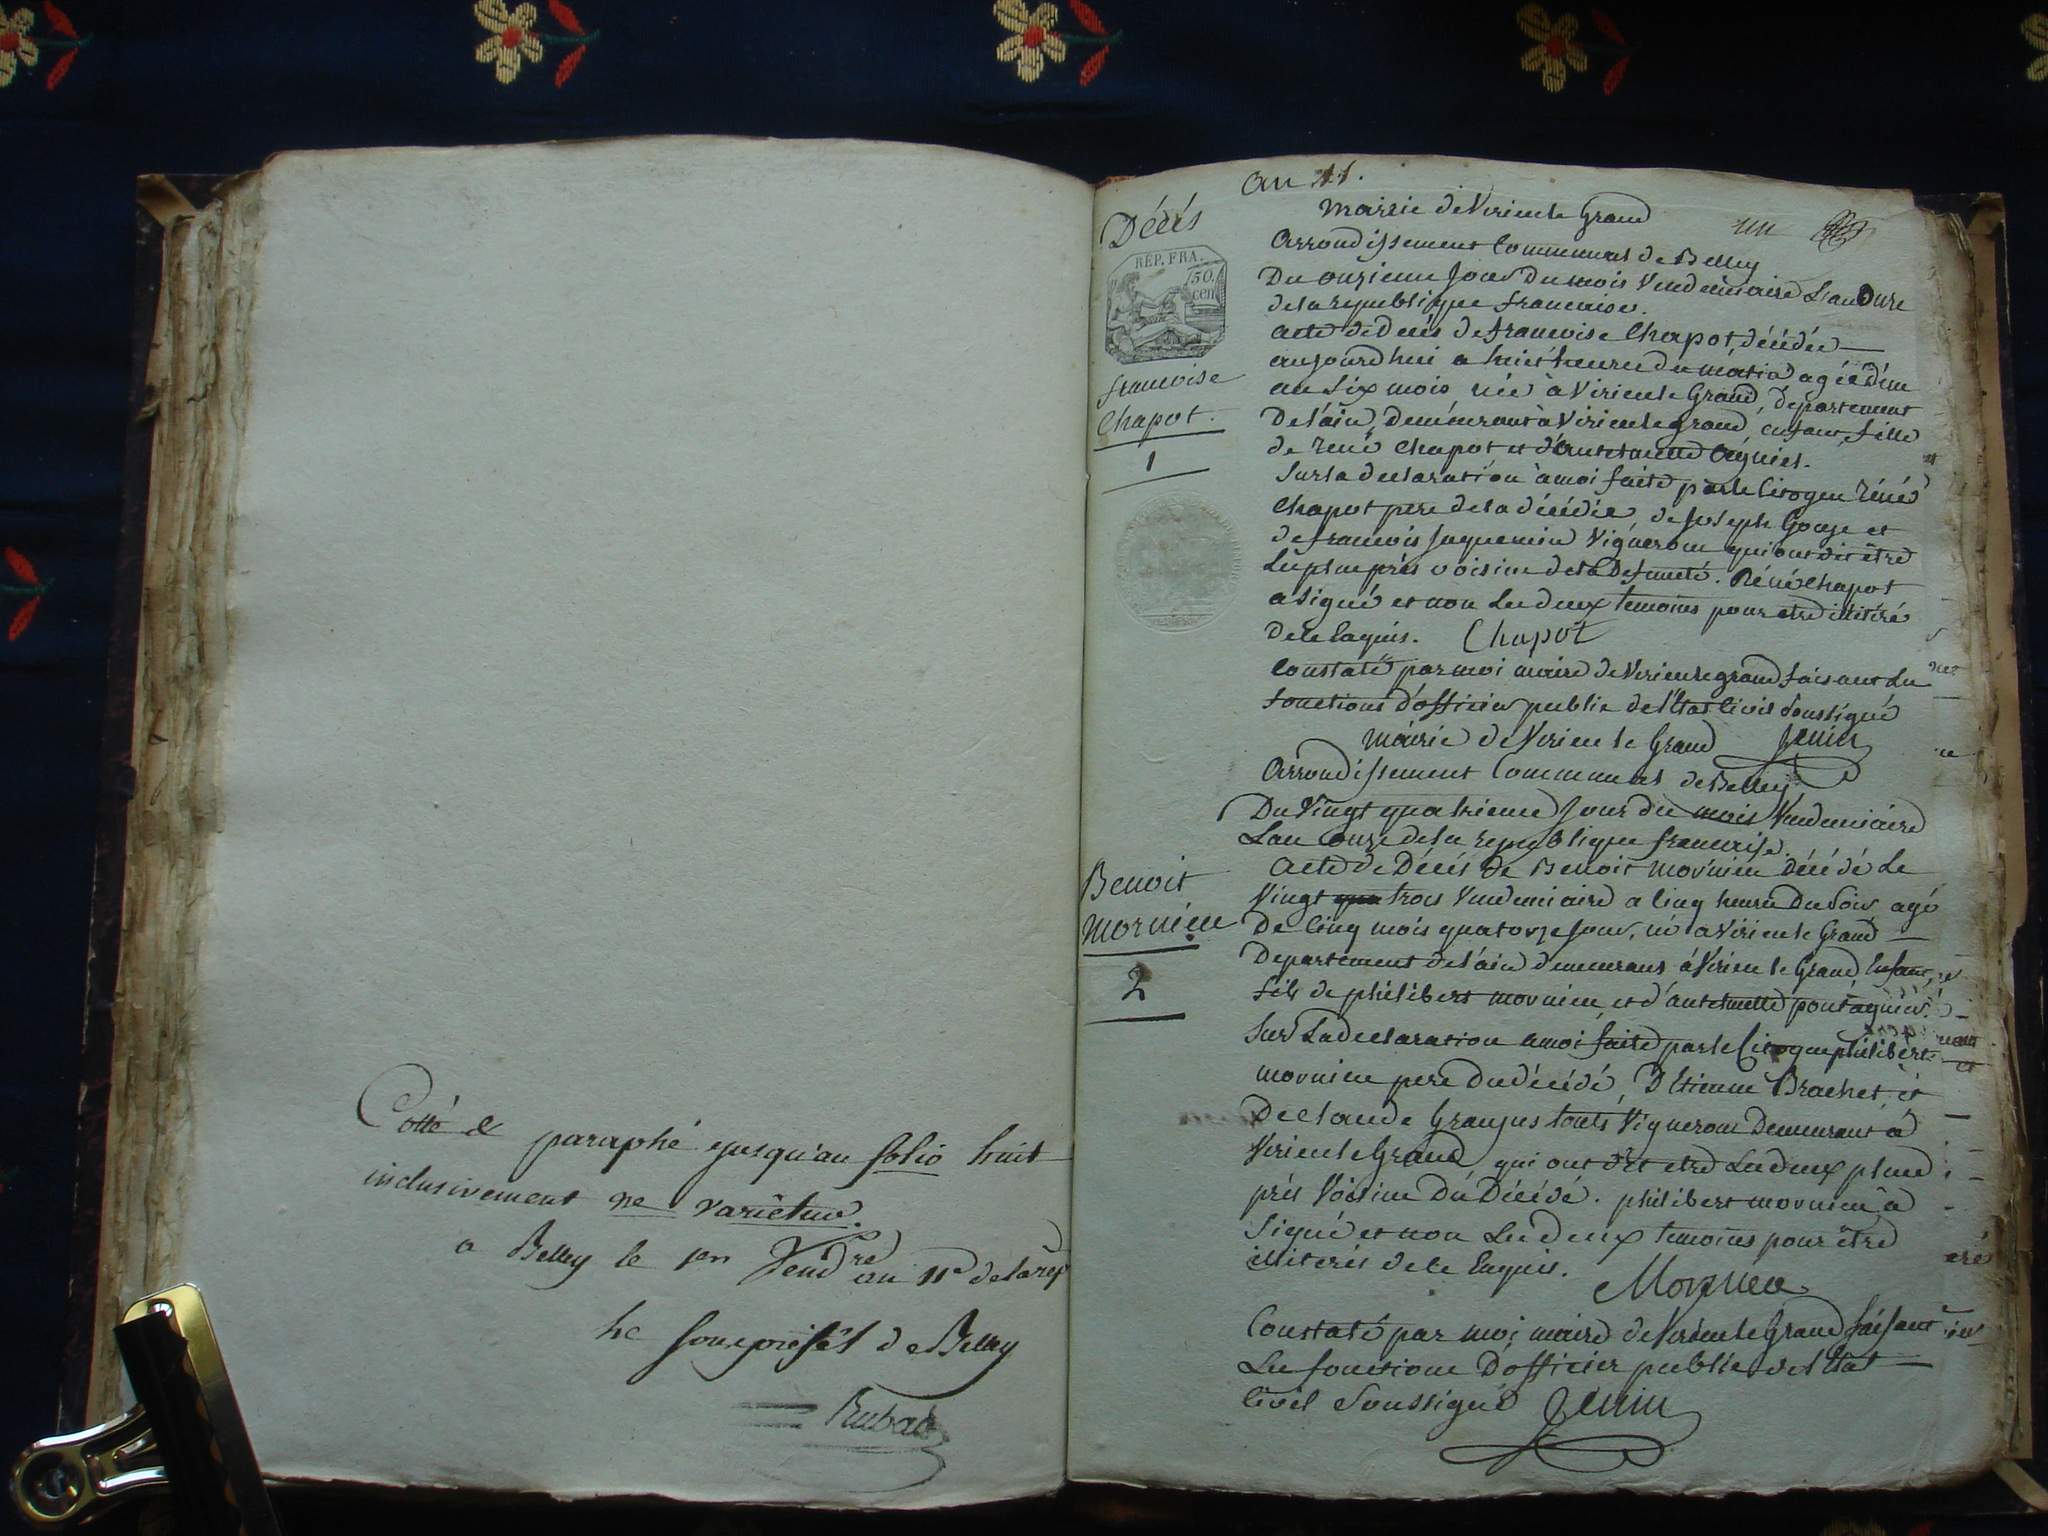 Cotté & paraphé jusqu'au folio huit
inclusivement ne varietur.
a Belley le 1er Vendre an 11e de la rep
le souspréfet de Belley
Rubat
an 11.
Décés
RÉP. FRA.
50.
cen
francoise
Chapot.
1
Benoit
mornieu
2
Mairie de Virieu le Grand
un
Arrondissement Communal de Belley
Du onzieme Jour du mois Vendemiaire L'an Onze
de la republique francaise.
acte de Decés de francoise Chapot, décédée
aujourdhui a huit heure du matin agée d'un
an six mois, née à Virieu le Grand, departement
De l'ain, demeurant à Virieu le grand, enfant, fille
de rené Chapot et d'antelmette
Sur la declaration à moi faite par le Citoyen réné
Chapot pere de la décédée, de Joseph Gouge et
de francois Juquemin Vigneron qui ont dit être
Le plus près voisins de la Defunte. Réné Chapot
a signé et non Les deux temoins pour etre illitéré
de ce Enquis. Chapot
Constaté par moi maire de Virieu le grand faisant Les
fonctions d'officier public de l'Etat Civil Soussigné
Mairie de Virieu le Grand Jenin
Arrondissement Communal de Belley
Du Vingt quatrieme Jour du mois Vendemiaire
L'an Onze de la republique francaise.
Acte de Décés de Benoit mornieu Décédé Le
Vingt qua trois Vendemiaire a Cinq heures Du Soir, agé
De Cinq mois quatorze jour, né a Virieu le Grand
Departement de l'ain demeurant à Virieu le Grand Enfant,
fils de philibert mornieu, et d'antelmette
Sur La declaration a moi faite par le Citoyen philibert
mornieu pere du décédé, D'Etienne Brachet, et
De Claude Granjus touts Vignerons Demeurant à
Virieu le Grand qui ont dit etre Les deux plus
près Voisins Du Décédé. philibert mornieu à
Signé et non Les deux temoins pour être
illiterés de ce Enquis. Mornieu
Constaté par moi maire de Virieu le Grand faisant
Les fonctions D'officier public de l'Etat
Civil Soussigné Jenin